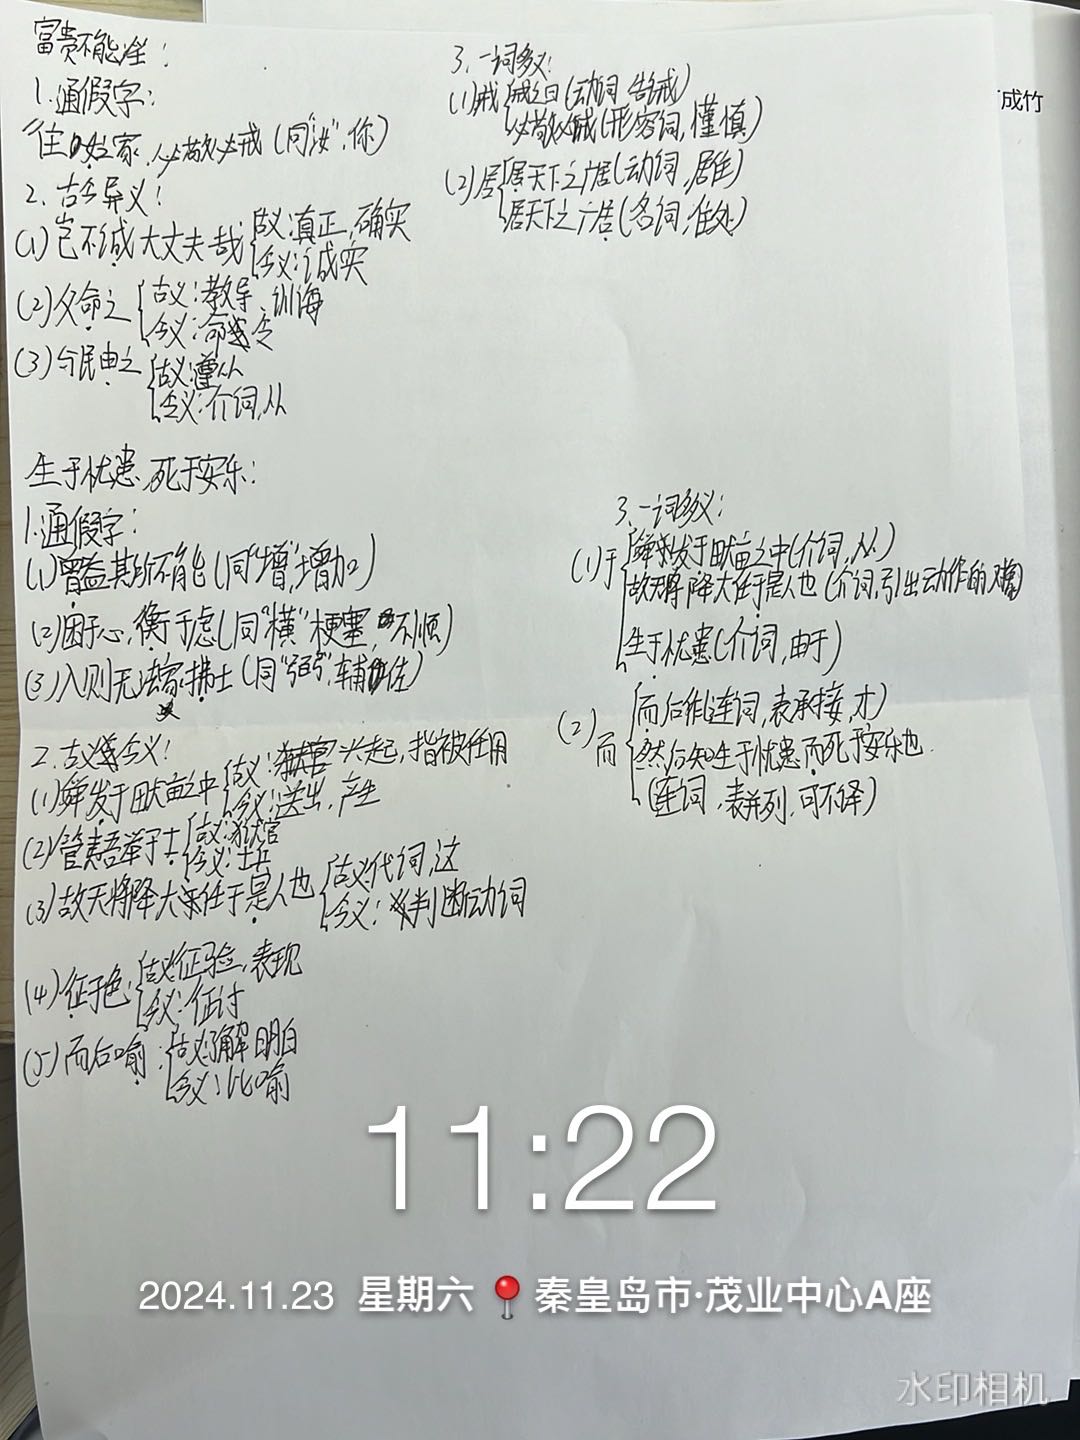 富贵不能淫：
1.通假字：
往之女家，必敬必戒（同"汝"，你）
2.古今异义：
(1)岂不诚大丈夫哉 古义：真正，确实
今义：诚实
(2)父命之 古义：教导、训诲
今义：命令
(3)与民由之 古义：遵从
今义：介词，从
3.一词多义：
(1)戒 戒之曰（动词，告诫）
必敬必戒（形容词，谨慎）
(2)居 居天下之广居（动词，居住）
居天下之广居（名词，住处）
生于忧患，死于安乐：
1.通假字：
(1)曾益其所不能（同"增"，增加）
(2)困于心，衡于虑（同"横"梗塞，不顺）
(3)入则无法家拂士（同"弼"，辅佐）
2.古义今义：
(1)舜发于畎亩之中 古义：兴起，指被任用
今义：送出，产生
(2)管夷吾举于士 古义：狱官
今义：士兵
(3)故天将降大任于是人也 古义代词，这
今义：判断动词
(4)征于色： 古义：征验，表现
今义：征讨
(5)而后喻： 古义：了解明白
今义：比喻
3.一词多义：
(1)于 舜发于畎亩之中（介词，从）
故天将降大任于是人也（介词，引出动作的对象）
生于忧患（介词，由于）
(2)而 而后作（连词，表承接，才）
然后知生于忧患而死于安乐也
（连词，表并列，可不译）
成竹
11:22
2024.11.23 星期六 秦皇岛市·茂业中心A座
水印相机